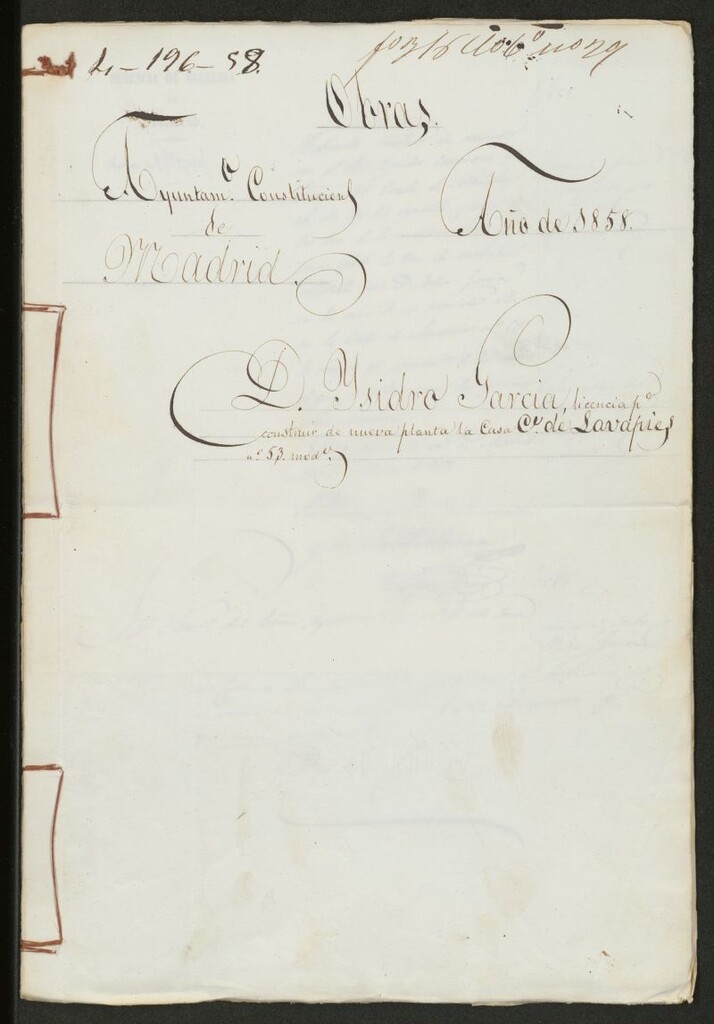 4-196-58.
Obras.
Ayuntam.º Constitucion.l
de
Madrid.
Año de 1858.
D. Ysidro Garcia, licencia p.ª
construir de nueva planta la Casa C.e de Lavapies
n.º 53. mod.º